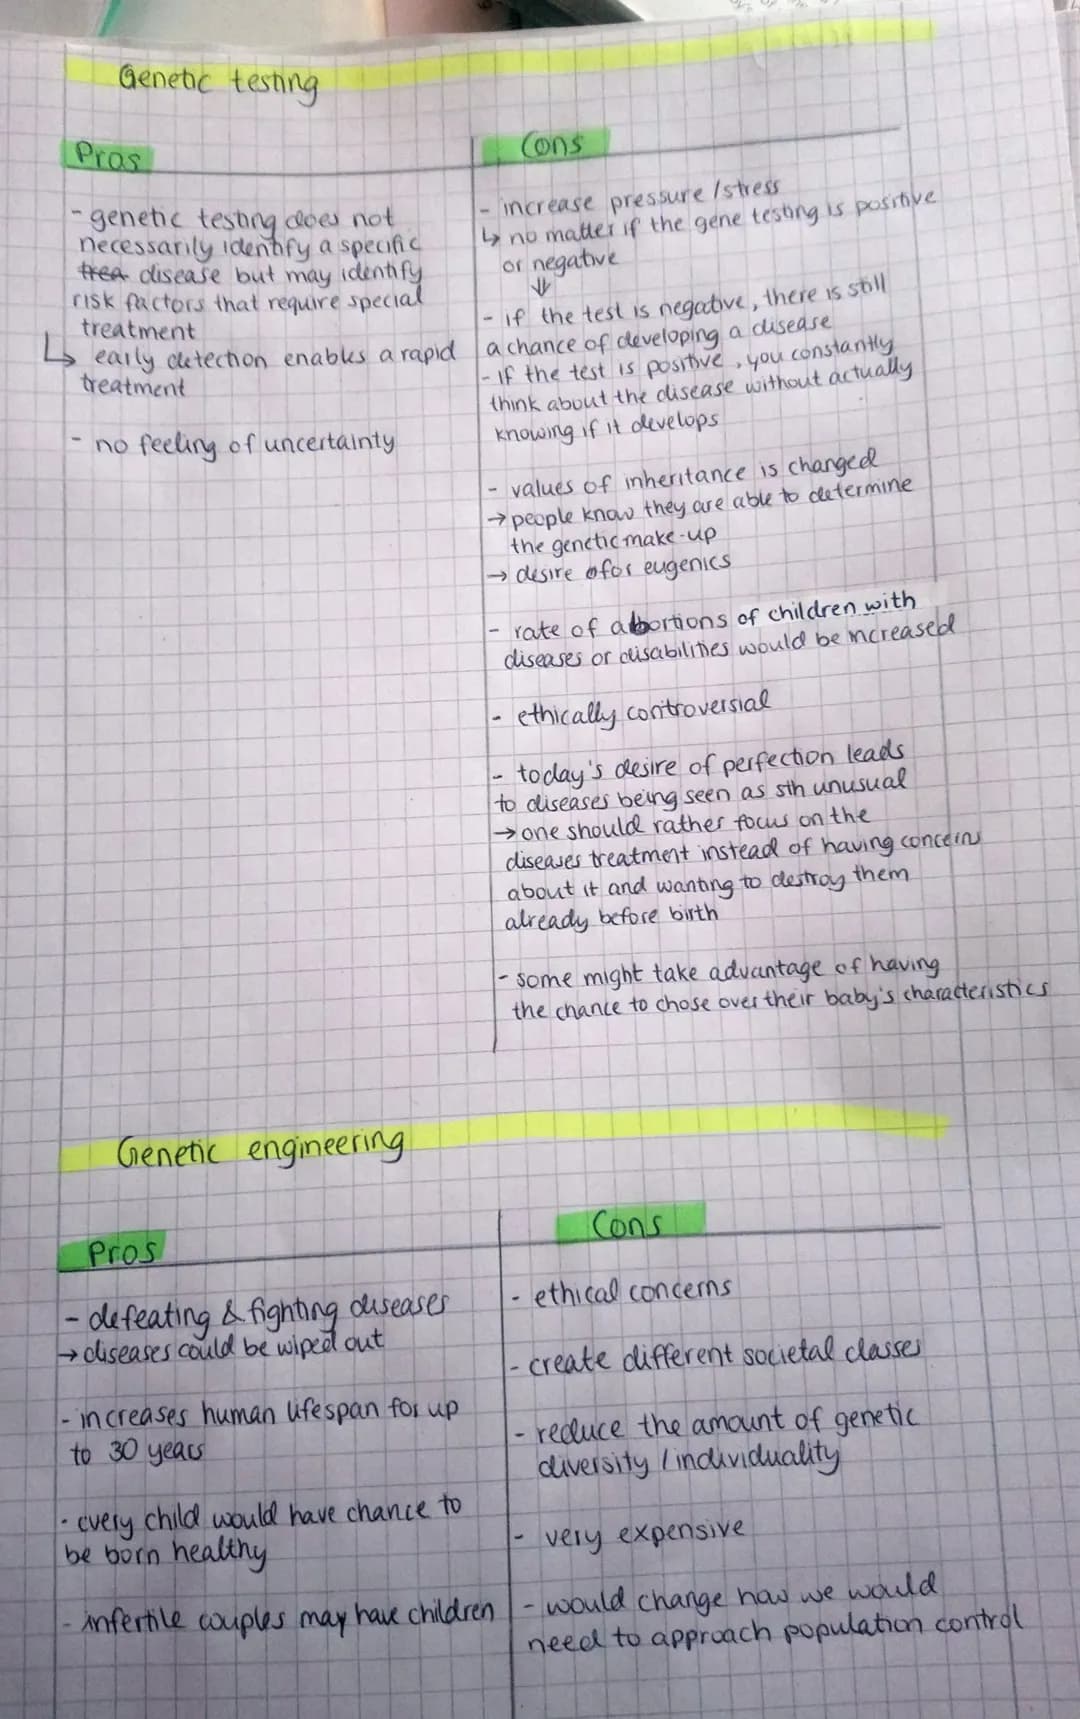 Genetic testing
Pros
- genetic testing does not
necessarily identify a specific
trea disease but may identify
risk factors that require special
treatment
↳ early detection enables a rapid
treatment
- no feeling of uncertainty
Cons
- increase pressure / stress
↳ no matter if the gene testing is positive
or negative
⇓
- if the test is negative, there is still
a chance of developing a disease
- If the test is positive, you constantly
think about the disease without actually
knowing if it develops
- values of inheritance is changed
→ people know they are able to determine
the genetic make-up
→ desire for eugenics
- rate of abortions of children with
diseases or disabilities would be increased
- ethically controversial
- today's desire of perfection leads
to diseases being seen as sth unusual
→ one should rather focus on the
diseases treatment instead of having concerns
about it and wanting to destroy them
already before birth
- some might take advantage of having
the chance to chose over their baby's characteristics
Genetic engineering
Pros
- defeating & fighting diseases
→ diseases could be wiped out
- increases human lifespan for up
to 30 years
- every child would have chance to
be born healthy
- infertile couples may have children
Cons
- ethical concerns
- create different societal classes
- reduce the amount of genetic
diversity / individuality
- very expensive
- would change how we would
need to approach population control